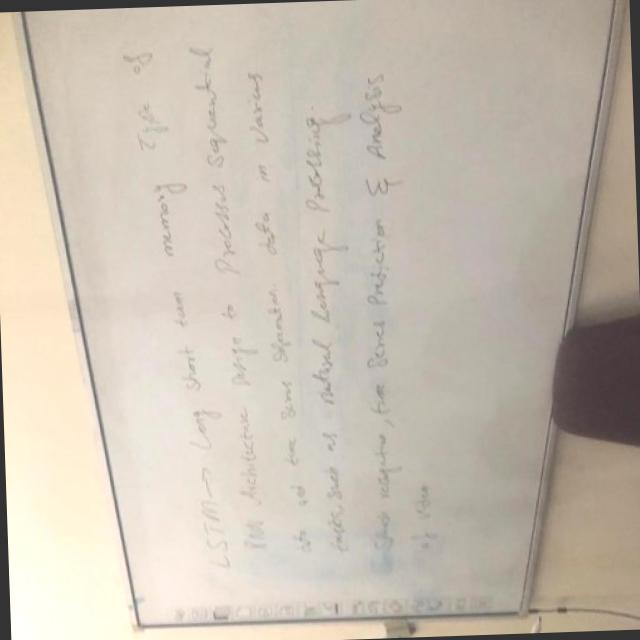 LSTM → Long short term memory Type of
RNN Architecture Design to Processes Sequential
data and time Series data in various
tasks such as Natural Language Processing.
Speech recognition, time Series Prediction & Analysis
of